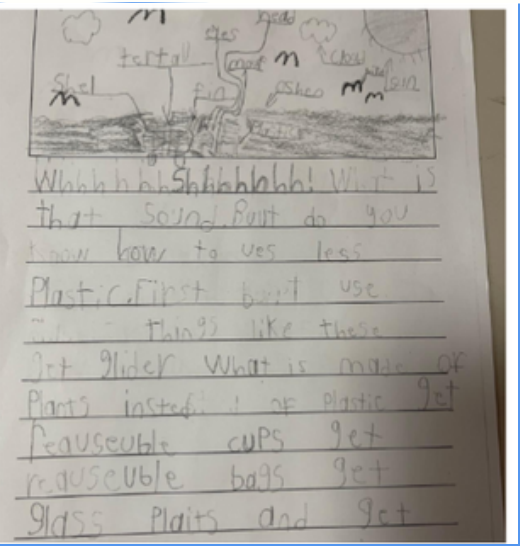 head
eyes
tertal moof clow
Shel fin oshen sin
WhhhhhhShhhhhhh! What is
that sound. But do you
know how to ues less
Plastic. First don't use
things like these
get glider What is made of
Plants insted of Plastic get
reauseuble cups get
reauseuble bags get
glass Plaits and get